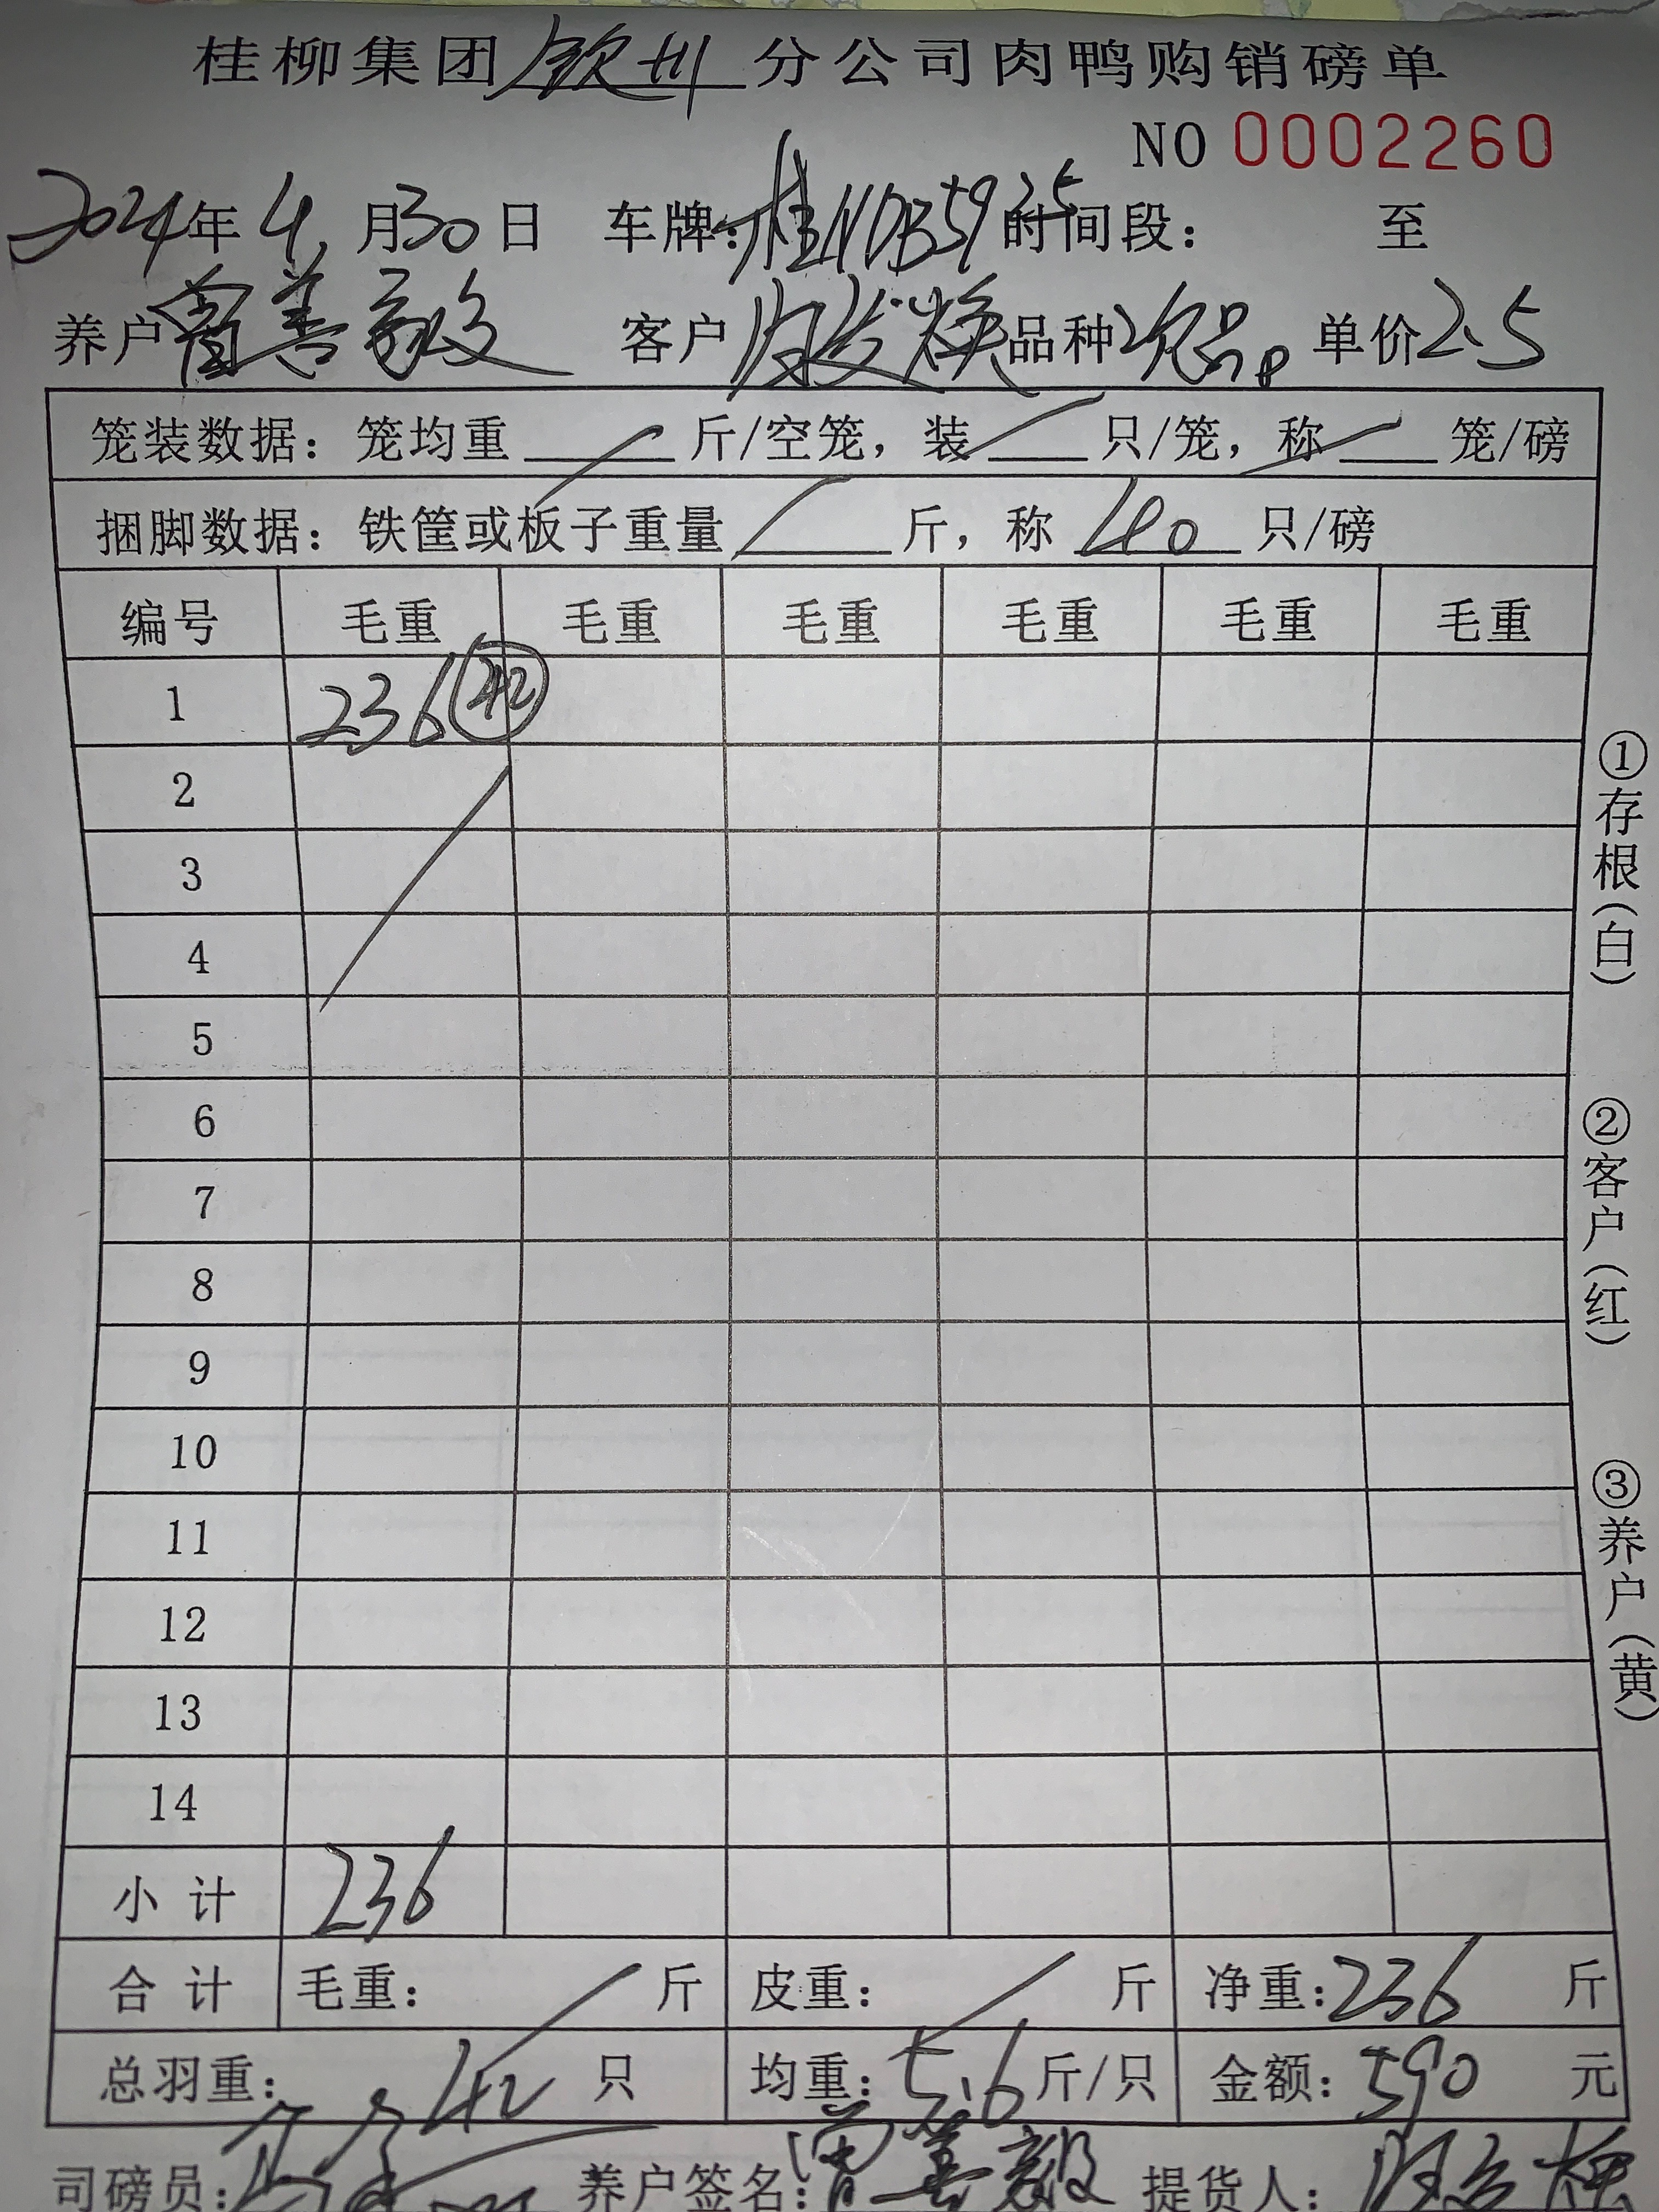 桂柳集团钦州分公司肉鸭购销磅单
NO 0002260
2024年4月30日 车牌: 桂NDB5925 时间段: 至
养户曾善毅 客户 焕 品种次品 单价2.5
笼装数据: 笼均重 / 斤/空笼, 装 / 只/笼, 称 / 笼/磅
捆脚数据: 铁筐或板子重量 / 斤, 称 40 只/磅
编号 毛重 毛重 毛重 毛重 毛重 毛重
1 236 42
2
3
4
5
6
7
8
9
10
11
12
13
14
小计 236
合计 毛重: / 斤 皮重: / 斤 净重: 236 斤
总羽重: 42 只 均重: 5.6 斤/只 金额: 590 元
司磅员: 养户签名: 曾善毅 提货人:
①存根(白)
②客户(红)
③养户(黄)